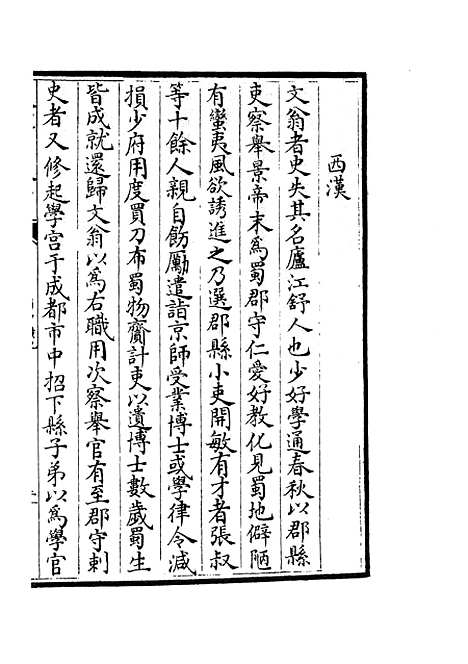 西漢
文翁者史失其名廬江舒人也少好學通春秋以郡縣
吏察舉景帝末爲蜀郡守仁愛好教化見蜀地僻陋
有蠻夷風欲誘進之乃選郡縣小吏開敏有才者張叔
等十餘人親自飭勵遣詣京師受業博士或學律令減
損少府用度買刀布蜀物齎計吏以遺博士數歲蜀生
皆成就還歸文翁以爲右職用次察舉官有至郡守刺
史者又修起學宮于成都市中招下縣子弟以爲學官